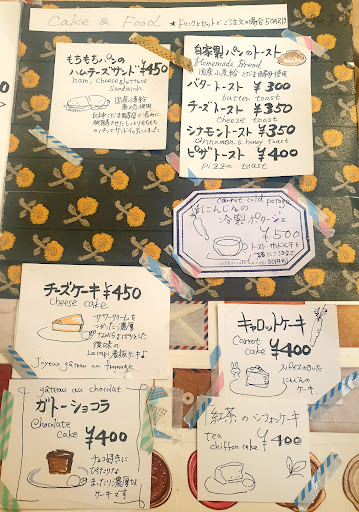 Cake & Food ★ドリンクとセットでご注文の場合50円引き
もちもちパンの
ハムチーズサンド ¥450
ham, cheese & lettuce
sandwich
国産小麦粉
自家製パンのトースト
Homemade bread
国産小麦粉・白神こだま酵母使用
バタートースト ¥300
butter toast
チーズトースト ¥350
cheese toast
シナモントースト ¥350
cinnamon & honey toast
ピザトースト ¥400
pizza toast
carrot cold potage
にんじんの
冷製ポタージュ
¥500
チーズケーキ ¥450
cheese cake
サワークリームを
つかった濃厚
後味の
Lacapi看板ケーキ♪
Joyeux gâteau au fromage
キャロットケーキ
carrot
cake ¥400
スパイスのきいた
にんじんの
ケーキ
gâteau au chocolat
ガトーショコラ
chocolate
cake ¥400
チョコ好きに
ぴったりな
まったり濃厚な
ケーキです
紅茶のシフォンケーキ
tea
chiffon cake ¥400